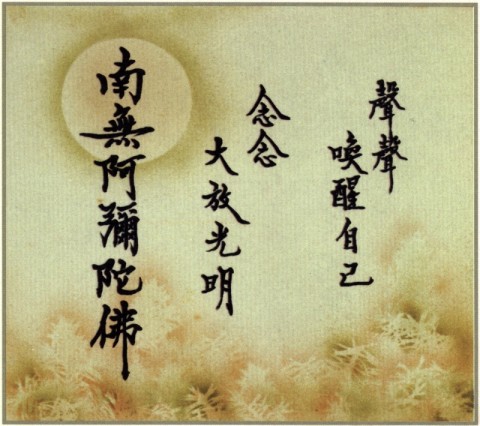 聲聲
喚醒自己
念念
大放光明
南無阿彌陀佛